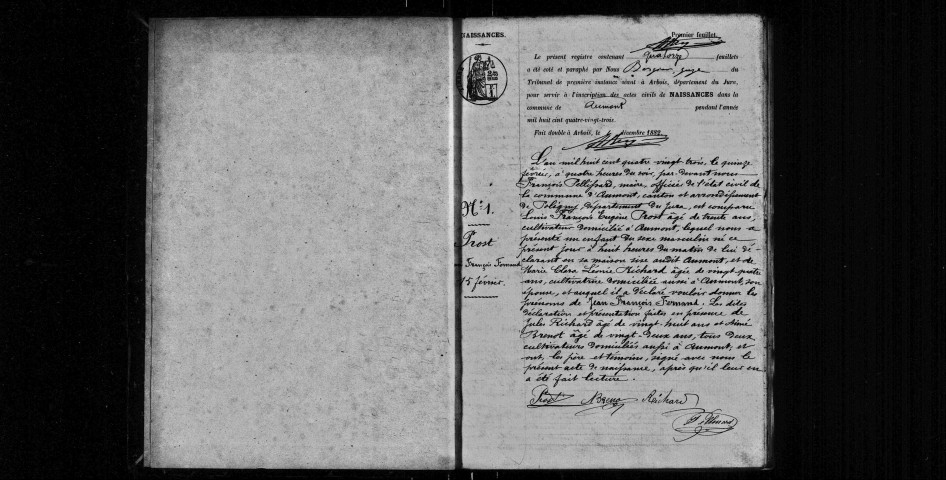 Premier feuillet.
NAISSANCES.
Le présent registre contenant quatorze feuillets
a été coté et paraphé par Nous juge du
Tribunal de première instance séant à Arbois, département du Jura,
pour servir à l'inscription des actes civils de NAISSANCES dans la
commune de Aumont pendant l'année
mil huit cent quatre-vingt-trois.
Fait double à Arbois, le décembre 1882.
N° 1.
Prost
François Fernand
15 février.
L'an mil huit cent quatre vingt trois, le quinze
février, à quatre heures du soir, par devant nous
François Pellissard, maire, officier de l'état civil de
la commune d'Aumont, canton et arrondissement
de Poligny, département du Jura, est comparu
Louis François Eugène Prost âgé de trente ans,
cultivateur domicilié à Aumont, lequel nous a
présenté un enfant du sexe masculin né ce
présent jour à huit heures du matin de lui dé-
clarant en sa maison sise audit Aumont, et de
Marie Clara Léonie Richard âgée de vingt quatre
ans, cultivatrice domiciliée aussi à Aumont, son
épouse, et auquel il a déclaré vouloir donner les
prénoms de Jean François Fernand. Les dites
déclaration et présentation faites en présence de
Jules Richard âgé de vingt-huit ans et Aimé
Brenot âgé de vingt-deux ans, tous deux
cultivateurs domiciliés aussi à Aumont, et
ont, les père et témoins, signé avec nous le
présent acte de naissance, après qu'il leur en
a été fait lecture.
Prost ABrenot Richard
Pellissard